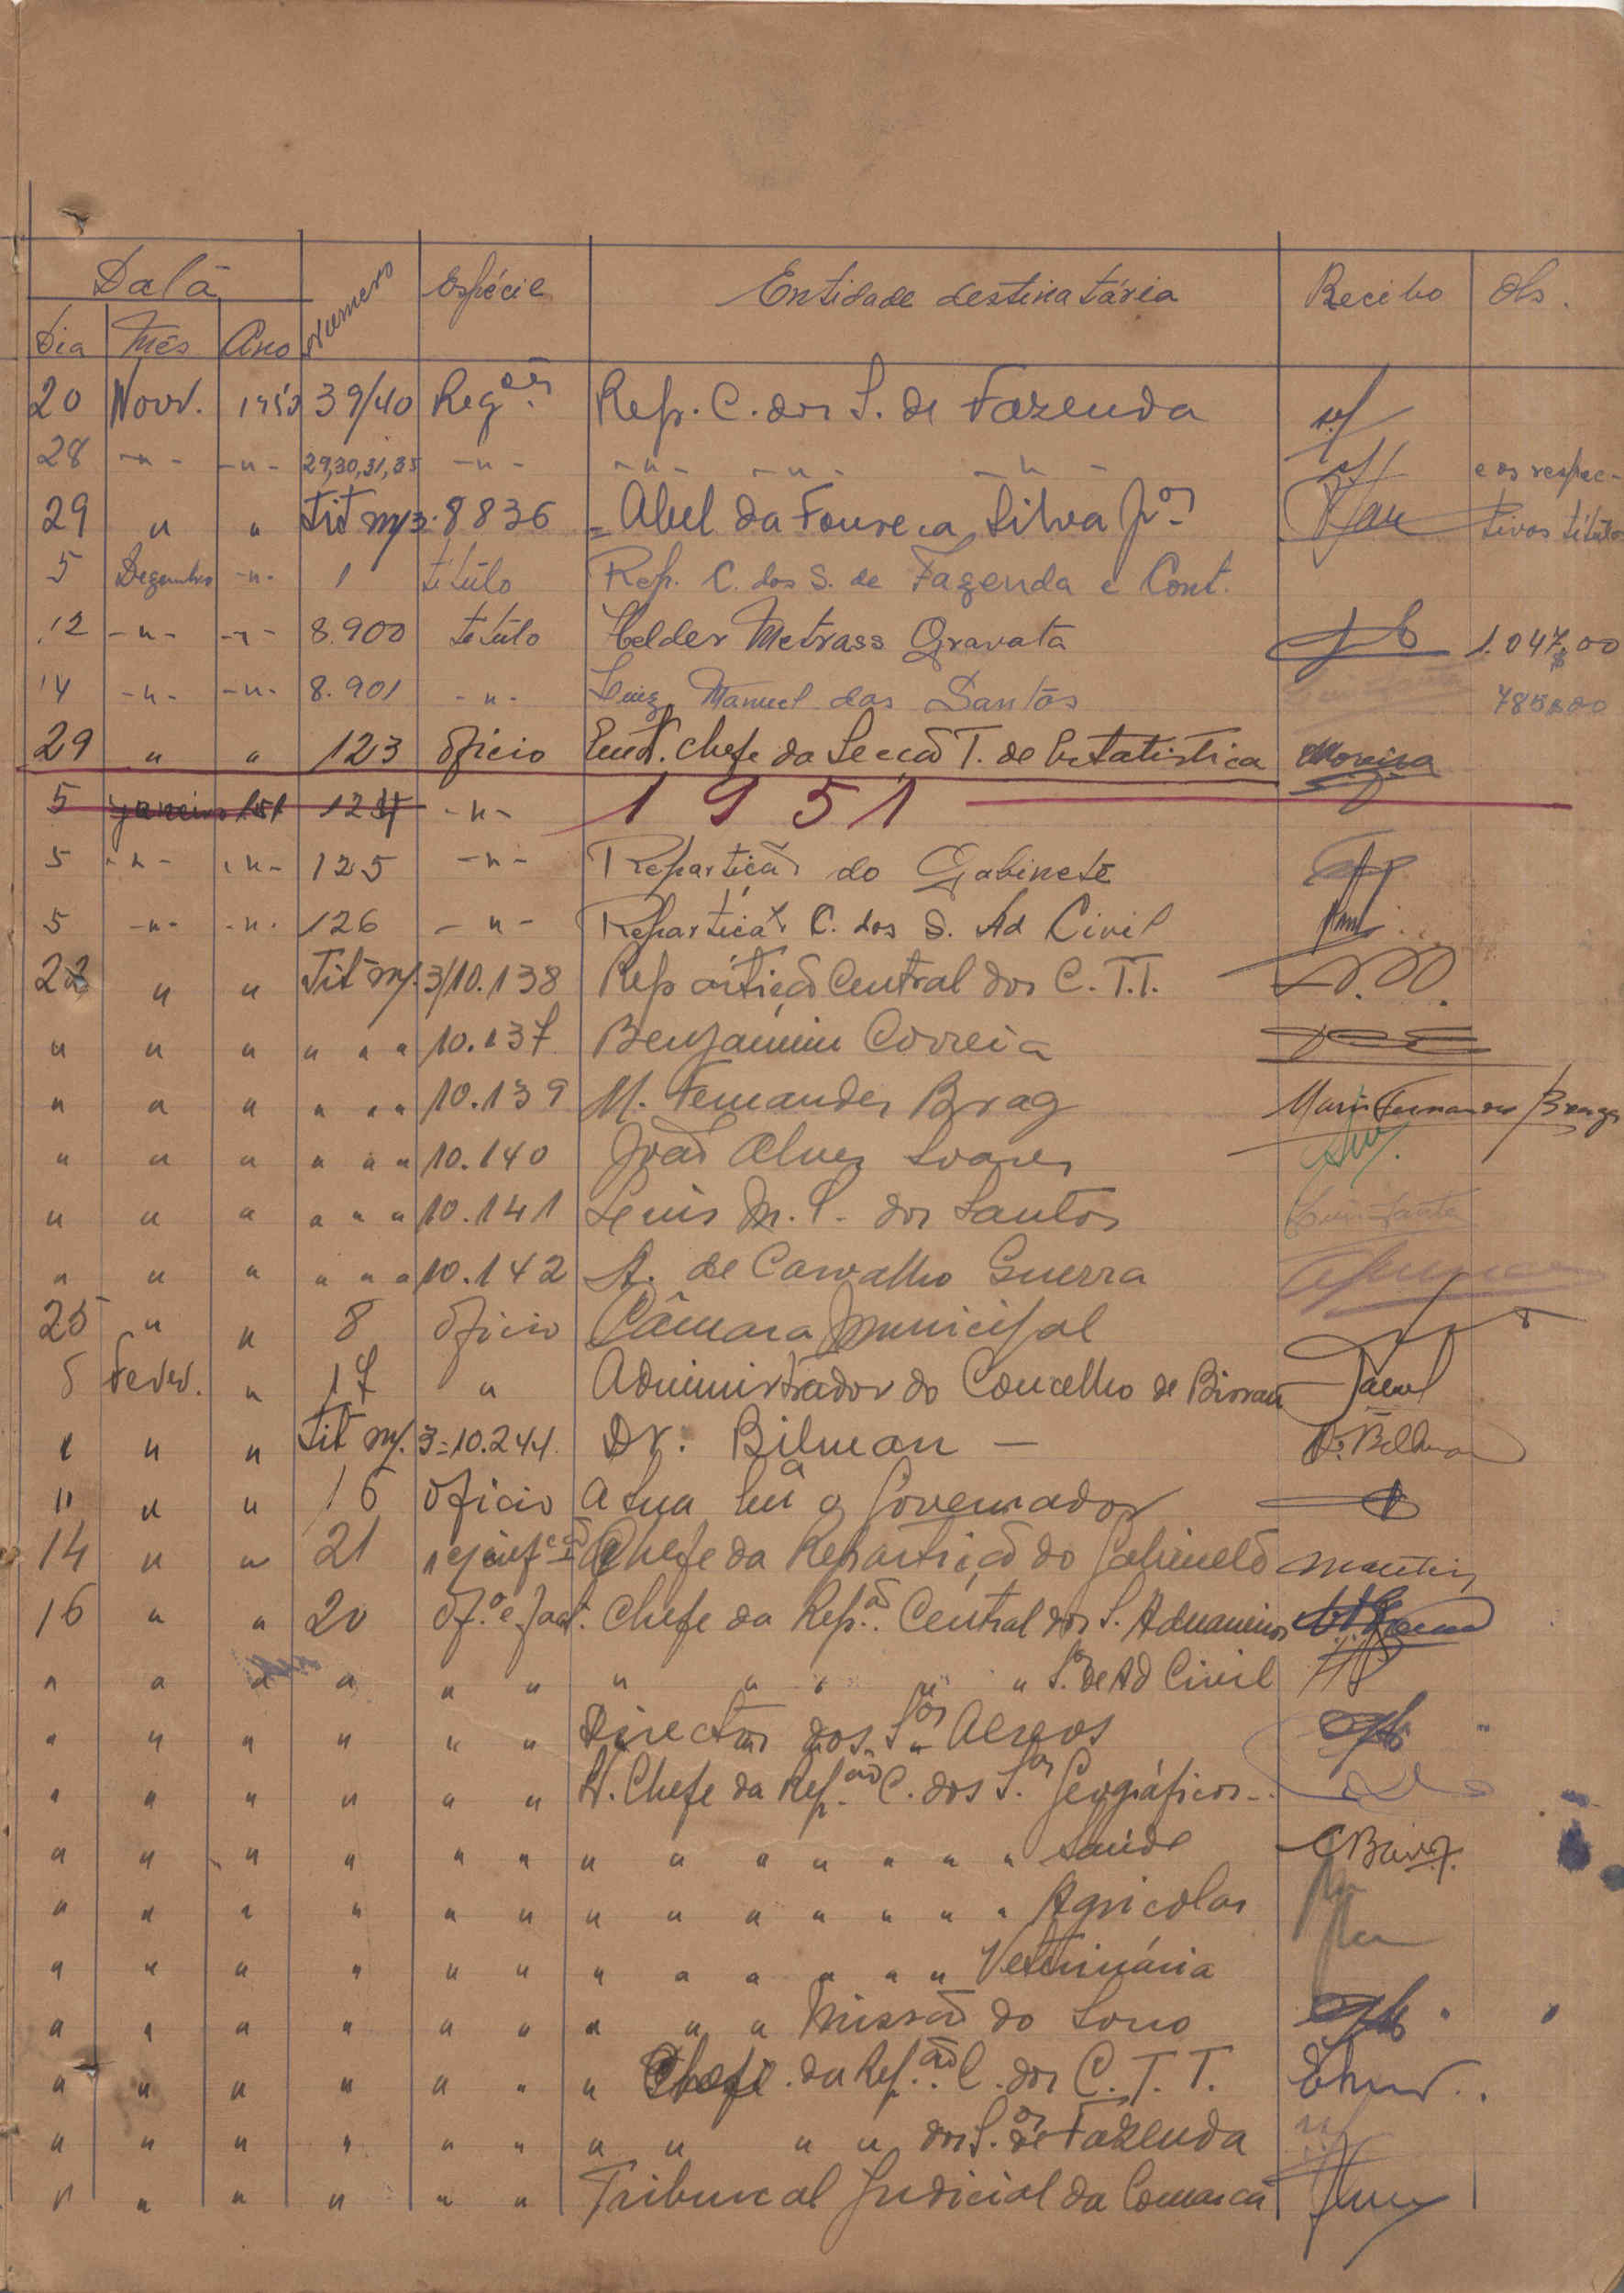 Data Numero Espécie Entidade destinatária Recibo Obs.
Dia Mês Ano
20 Novr. 1950 39/40 Reqões Rep. C. dos S. de Fazenda
28 -"- -"- 29,30,31,35 -"- -"- -"- -"- e os respec-
29 " " Tit m/3: 8836 = Abel da Fonseca Silva Jor tivos titulos
5 Dezembro -"- 1 titúlo Rep. C. dos S. de Fazenda e Cont.
12 -"- -"- 8.900 titúlo Helder Metrass Gravata 1.047$00
14 -"- -"- 8.901 -"- Luiz Manuel dos Santos 785$00
29 " " 123 Oficio Chefe da Secção T. de Estatistica Moreira
5 Janeiro 151 124 -"- 1951
5 -"- -"- 125 -"- Repartição do Gabinete
5 -"- -"- 126 -"- Repartição C. dos S. Ad Civil
22 " " Tit m/. 3/10.138 Repartição Central dos C.T.T.
" " " " " " 10.137 Benjamim Correia
" " " " " " 10.139 M. Fernandes Brag Maria Fernandes Braga
" " " " " " 10.140 João Alves Soares
" " " " " " 10.141 Luis M. S. dos Santos Luis Santos
" " " " " " 10.142 A. de Carvalho Guerra
25 " " 8 Oficio Câmara Municipal
5 Fever. " 17 " Administrador do Concelho de Bissau
" " " Tit m/. 3=10.244. Dr. Bilman — Dr. Billman
11 " " 16 Oficio A Sua Exa o Governador
14 " " 21 Chefe da Repartição do Gabinete Martins
16 " " 20 Of.o e Fact. Chefe da Rep.ão Central dos S. Aduaneiros
" " " " " " " " " " " S. de Ad Civil
" " " " " " Director dos Sos Aereos
" " " " " " H. Chefe da Repão C. dos Sos Geográficos
" " " " " " " " " " " " " Saúde
" " " " " " " " " " " " " Agricolas
" " " " " " " " " " " " Veterinária
" " " " " " " " " Missão do Sono
" " " " " " " Chefe da Rep.ão C. dos C.T.T.
" " " " " " " " " " dos S.os de Fazenda
" " " " " " Tribuncal Judicial da Comarca